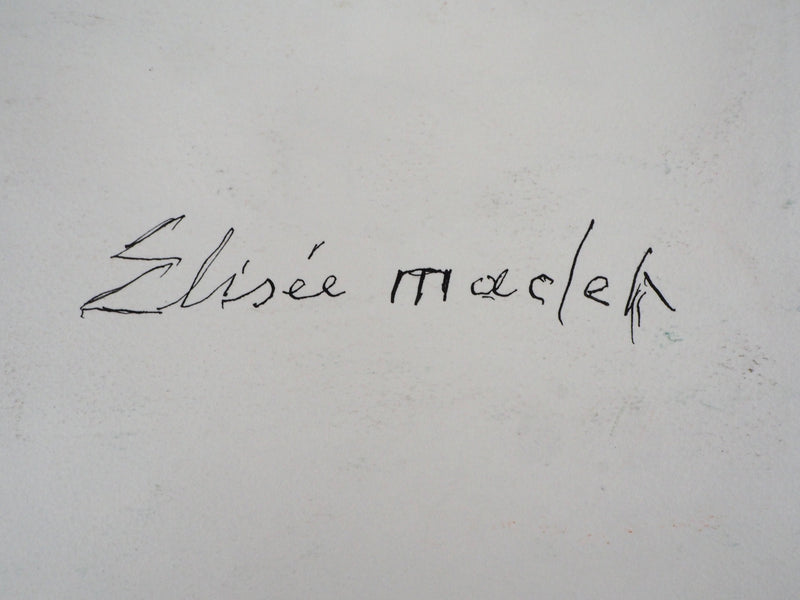 Elisée maclet